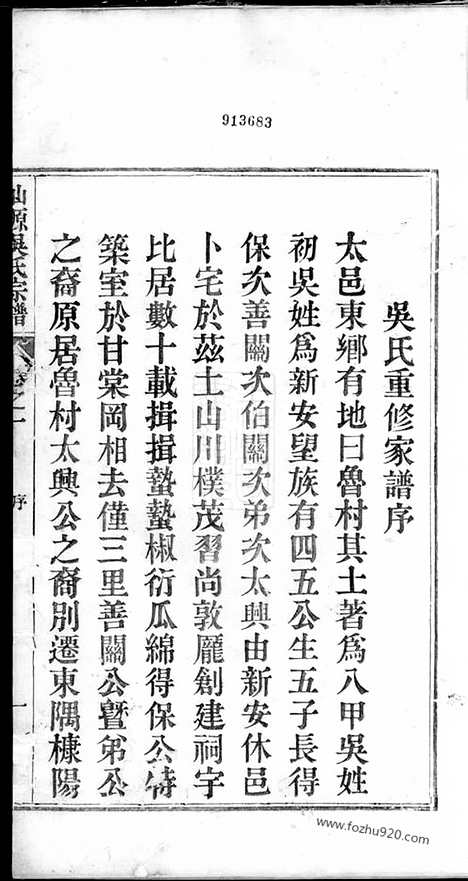 913683
吳氏重修家譜序
太邑東鄉有地曰魯村其土著爲八甲吳姓
初吳姓爲新安望族有四五公生五子長得
保次善關次伯關次弟次太興由新安休邑
卜宅於茲土山川樸茂習尚敦龐創建祠宇
比居數十載揖揖蟄蟄椒衍瓜綿得保公特
築室於甘棠岡相去僅三里善關公暨弟公
之裔原居魯村太興公之裔別遷東隅槺陽
源吳氏宗譜
卷之一
序
一
www.fozhu920.com